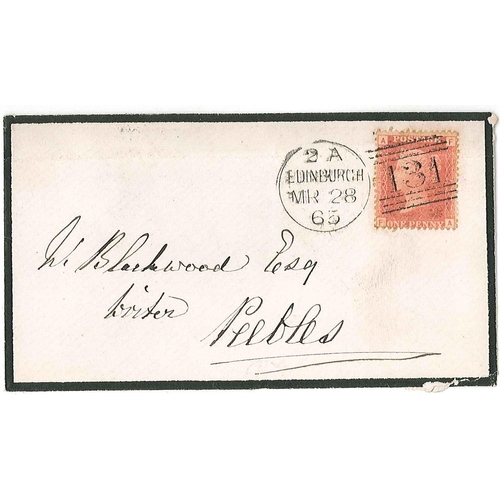 2 A
EDINBURGH
MR 28
63
A POSTAGE F
131
F ONE PENNY A
W Blackwood Esq
Writer
Peebles